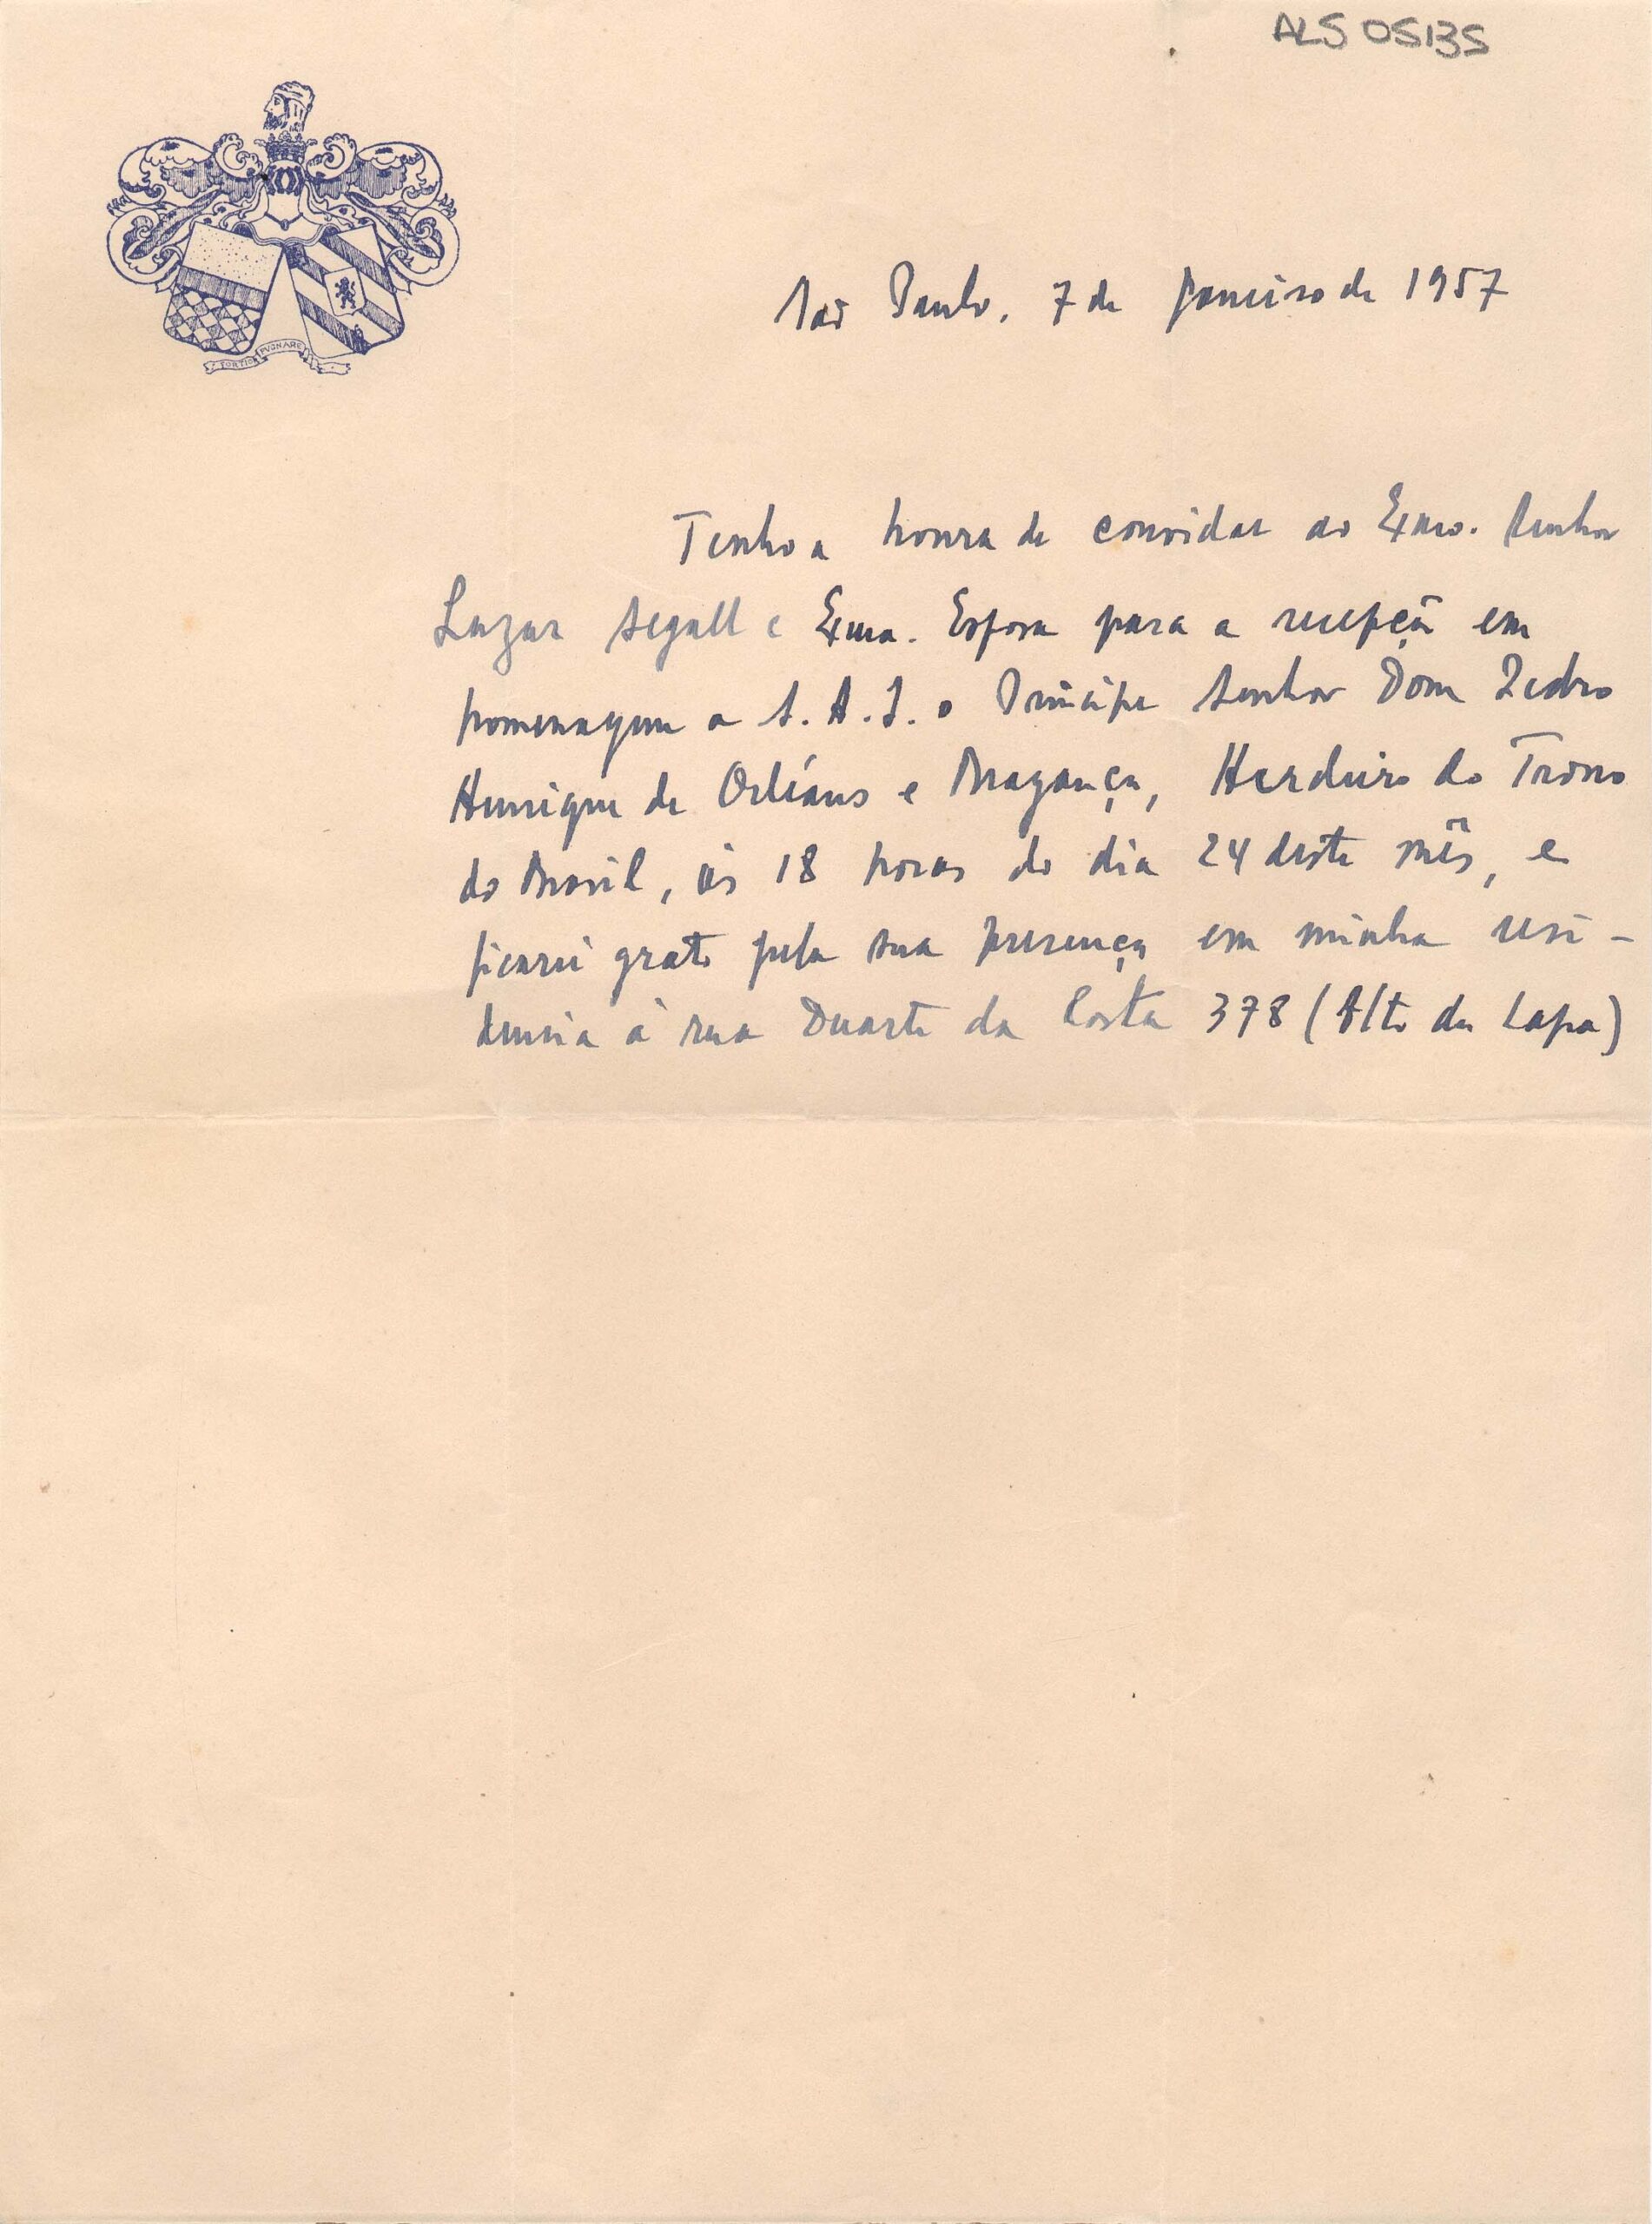 ALS 05135
FORTIOR PUGNARE
São Paulo, 7 de Janeiro de 1957
Tenho a honra de convidar ao Exmo. Senhor
Lazar Segall e Exma. Esposa para a recepção em
homenagem a S. A. I. o Principe Senhor Dom Pedro
Henrique de Orléans e Bragança, Herdeiro do Trono
do Brasil, às 18 horas do dia 24 deste mês, e
ficarei grato pela sua presença em minha resi-
dencia à rua Duarte da Costa 378 (Alto da Lapa)